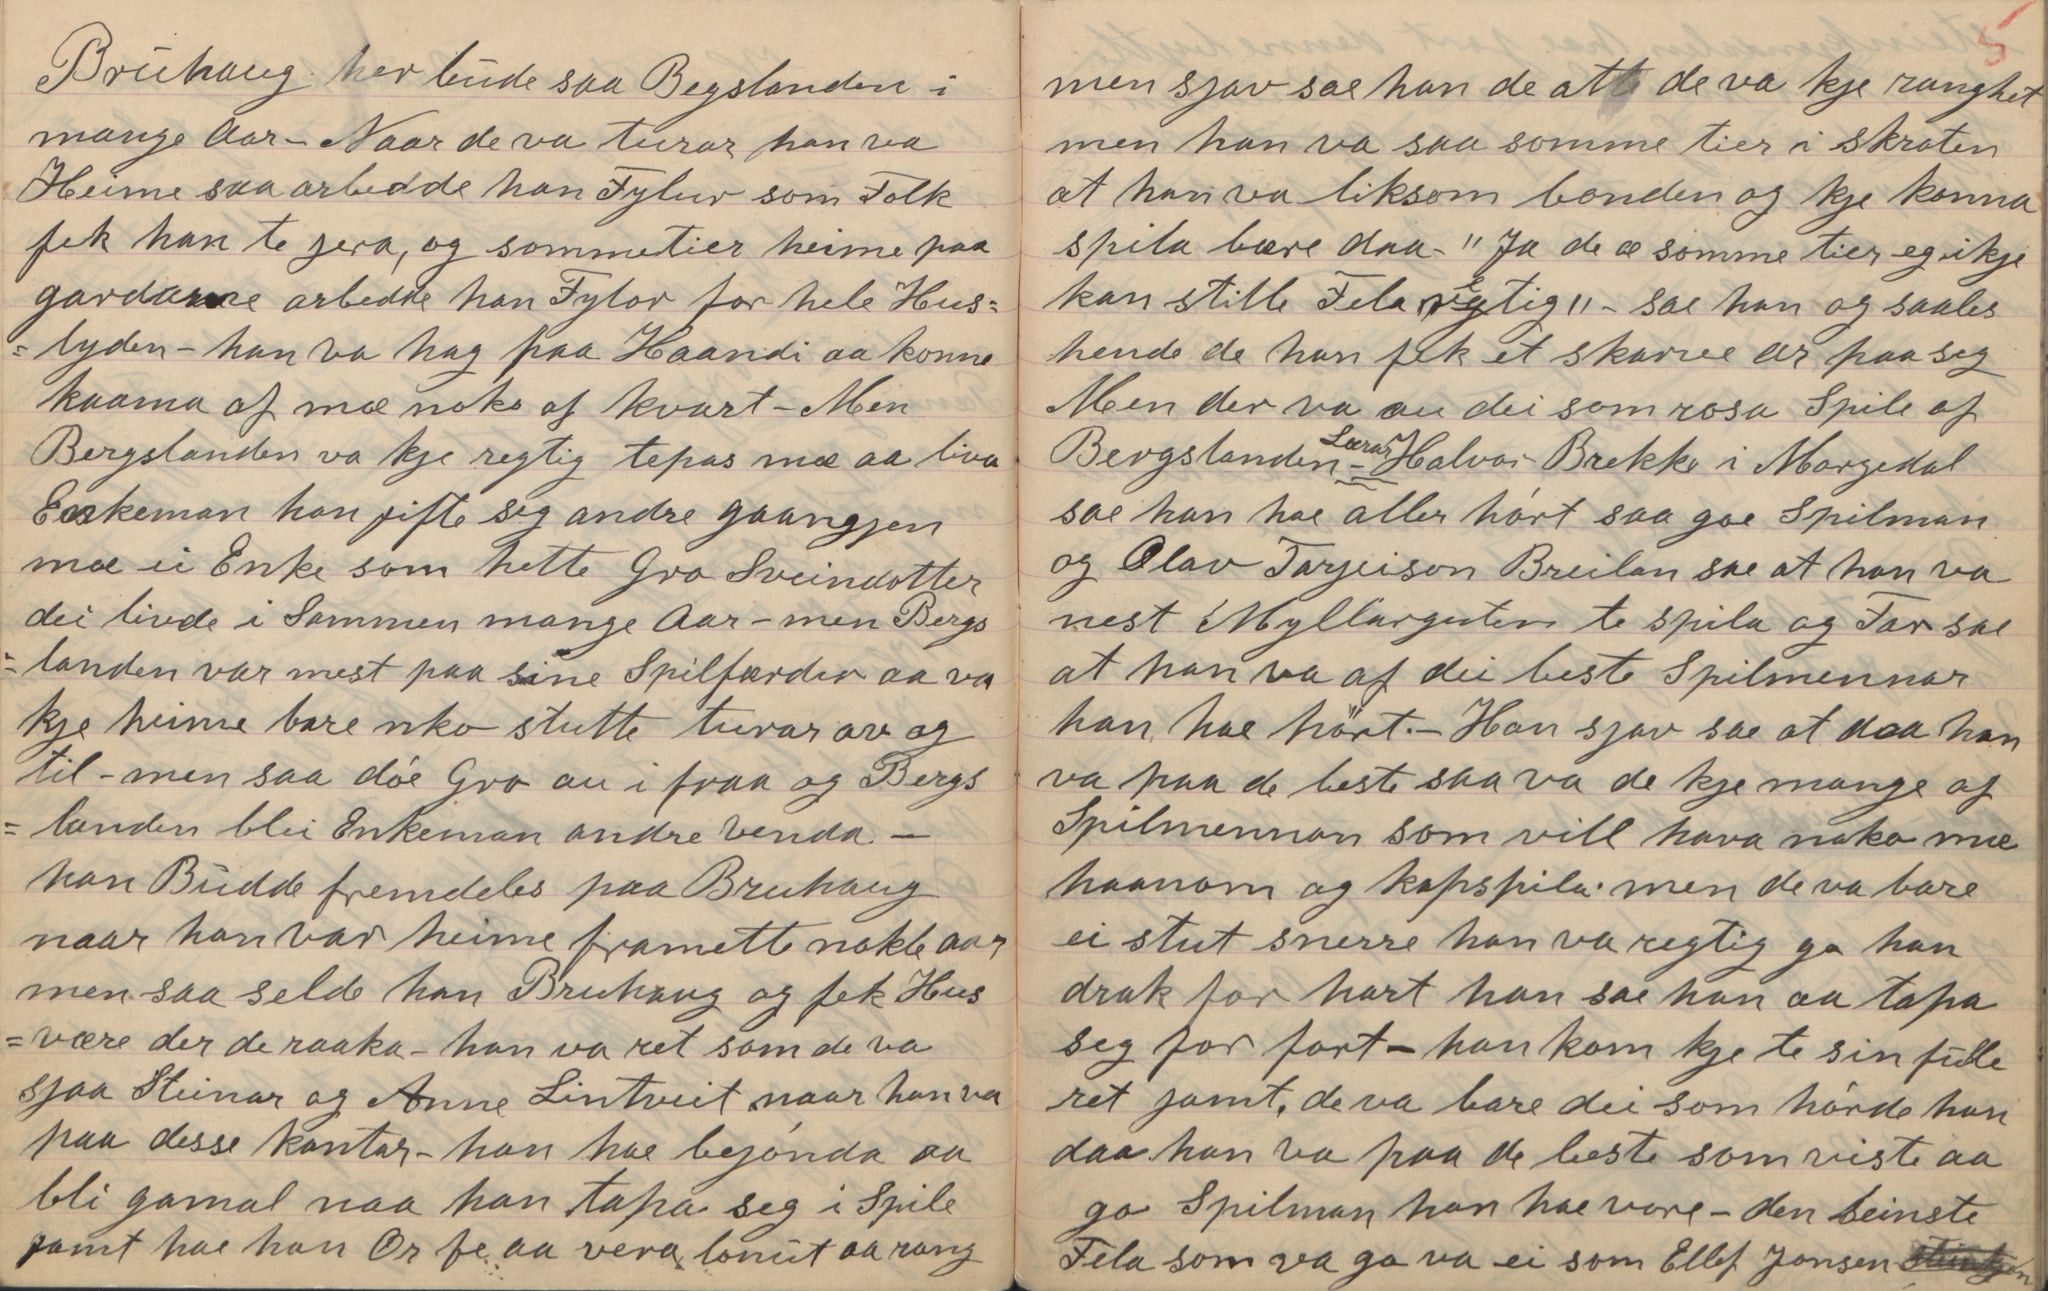 Bruhaug her bude saa Begslanden i
mange Aar – Naar de va turar han va
Heime saa arbedde han Fylur som Folk
fek han te jera, og sommetier heime paa
gardanne arbedde han Fylor for hele Hus=
=lyden – han va hag paa Haandi aa konne
kaama af mæ noko af kvart – Men
Bergslanden va kje regtig tepas mæ aa liva
Enkeman han jifte seg andre gaangjen
mæ ei Enke som hette Gro Sveindotter
dei livde i Sammen mange Aar – men Bergs
=landen var mest paa sine Spilfærder aa va
kje heime bare nko stutte turar av og
til – men saa döe Gro au i fraa og Bergs
=landen blei Enkeman andre Venda –
han Budde fremdeles paa Bruhaug
naar han var heime framette nokle aar
men saa selde han Bruhaug og fek Hus
=være der de raaka – han va ret som de va
sjaa Steinar og Anne Lintveit naar han va
paa desse kantar – han hae bejónda aa
bli gamal naa han tapa seg i Spile
jamt hae han Or fe aa vera lonut aa rang
5
men sjav sae han de att de va kje ranghet
men han va saa somme tier i skraten
at han va liksom bonden og kje konna
spila bære daa – "Ja de æ somme tier eg ikje
kan stille Fela regtig" – sae han og saales
hende de han fek et skarve Or paa seg
Men der va au dei som rosa Spile af
Bergslanden – Lærar Halvor Brekke i Morgedal
sae han hae aller hórt saa goe Spilman
og Olav Tarjeison Breilan sae at han va
nest Myllarguten te spila og Far sae
at han va af dei beste Spilmennar
han hae hört. – Han sjav sae at daa han
va paa de beste saa va de kje mange af
Spilmennan som vill hava noko mæ
haanom og kapspila. men de va bare
ei stut snerre han va regtig go han
drak for hart han sae han aa tapa
seg for fort – han kom kje te sin fulle
ret jamt, de va bare dei som hórde han
daa han va paa de beste som viste aa
go Spilman han hae vore – den seinste
Fela som va go va ei som Ellef Jonsen